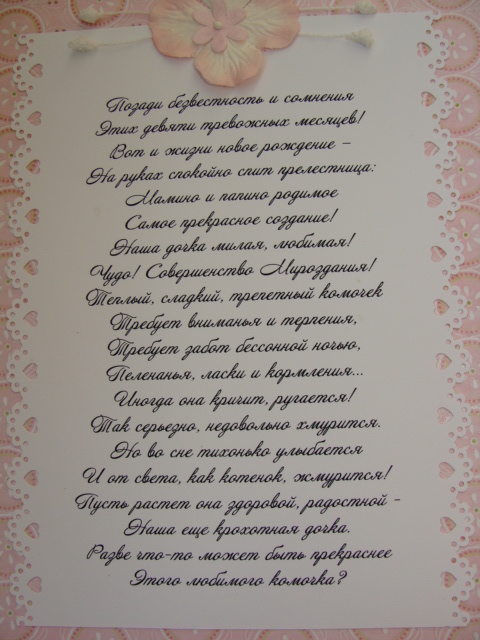 Позади безвестность и сомнения
Этих девяти тревожных месяцев!
Вот и жизни новое рождение –
На руках спокойно спит прелестница:
Мамино и папино родимое
Самое прекрасное создание!
Наша дочка милая, любимая!
Чудо! Совершенство Мироздания!
Теплый, сладкий, трепетный комочек
Требует вниманья и терпения,
Требует забот бессонной ночью,
Пеленанья, ласки и кормления...
Иногда она кричит, ругается!
Так серьезно, недовольно хмурится.
Но во сне тихонько улыбается
И от света, как котенок, жмурится!
Пусть растет она здоровой, радостной –
Наша еще крохотная дочка.
Разве что-то может быть прекраснее
Этого любимого комочка?